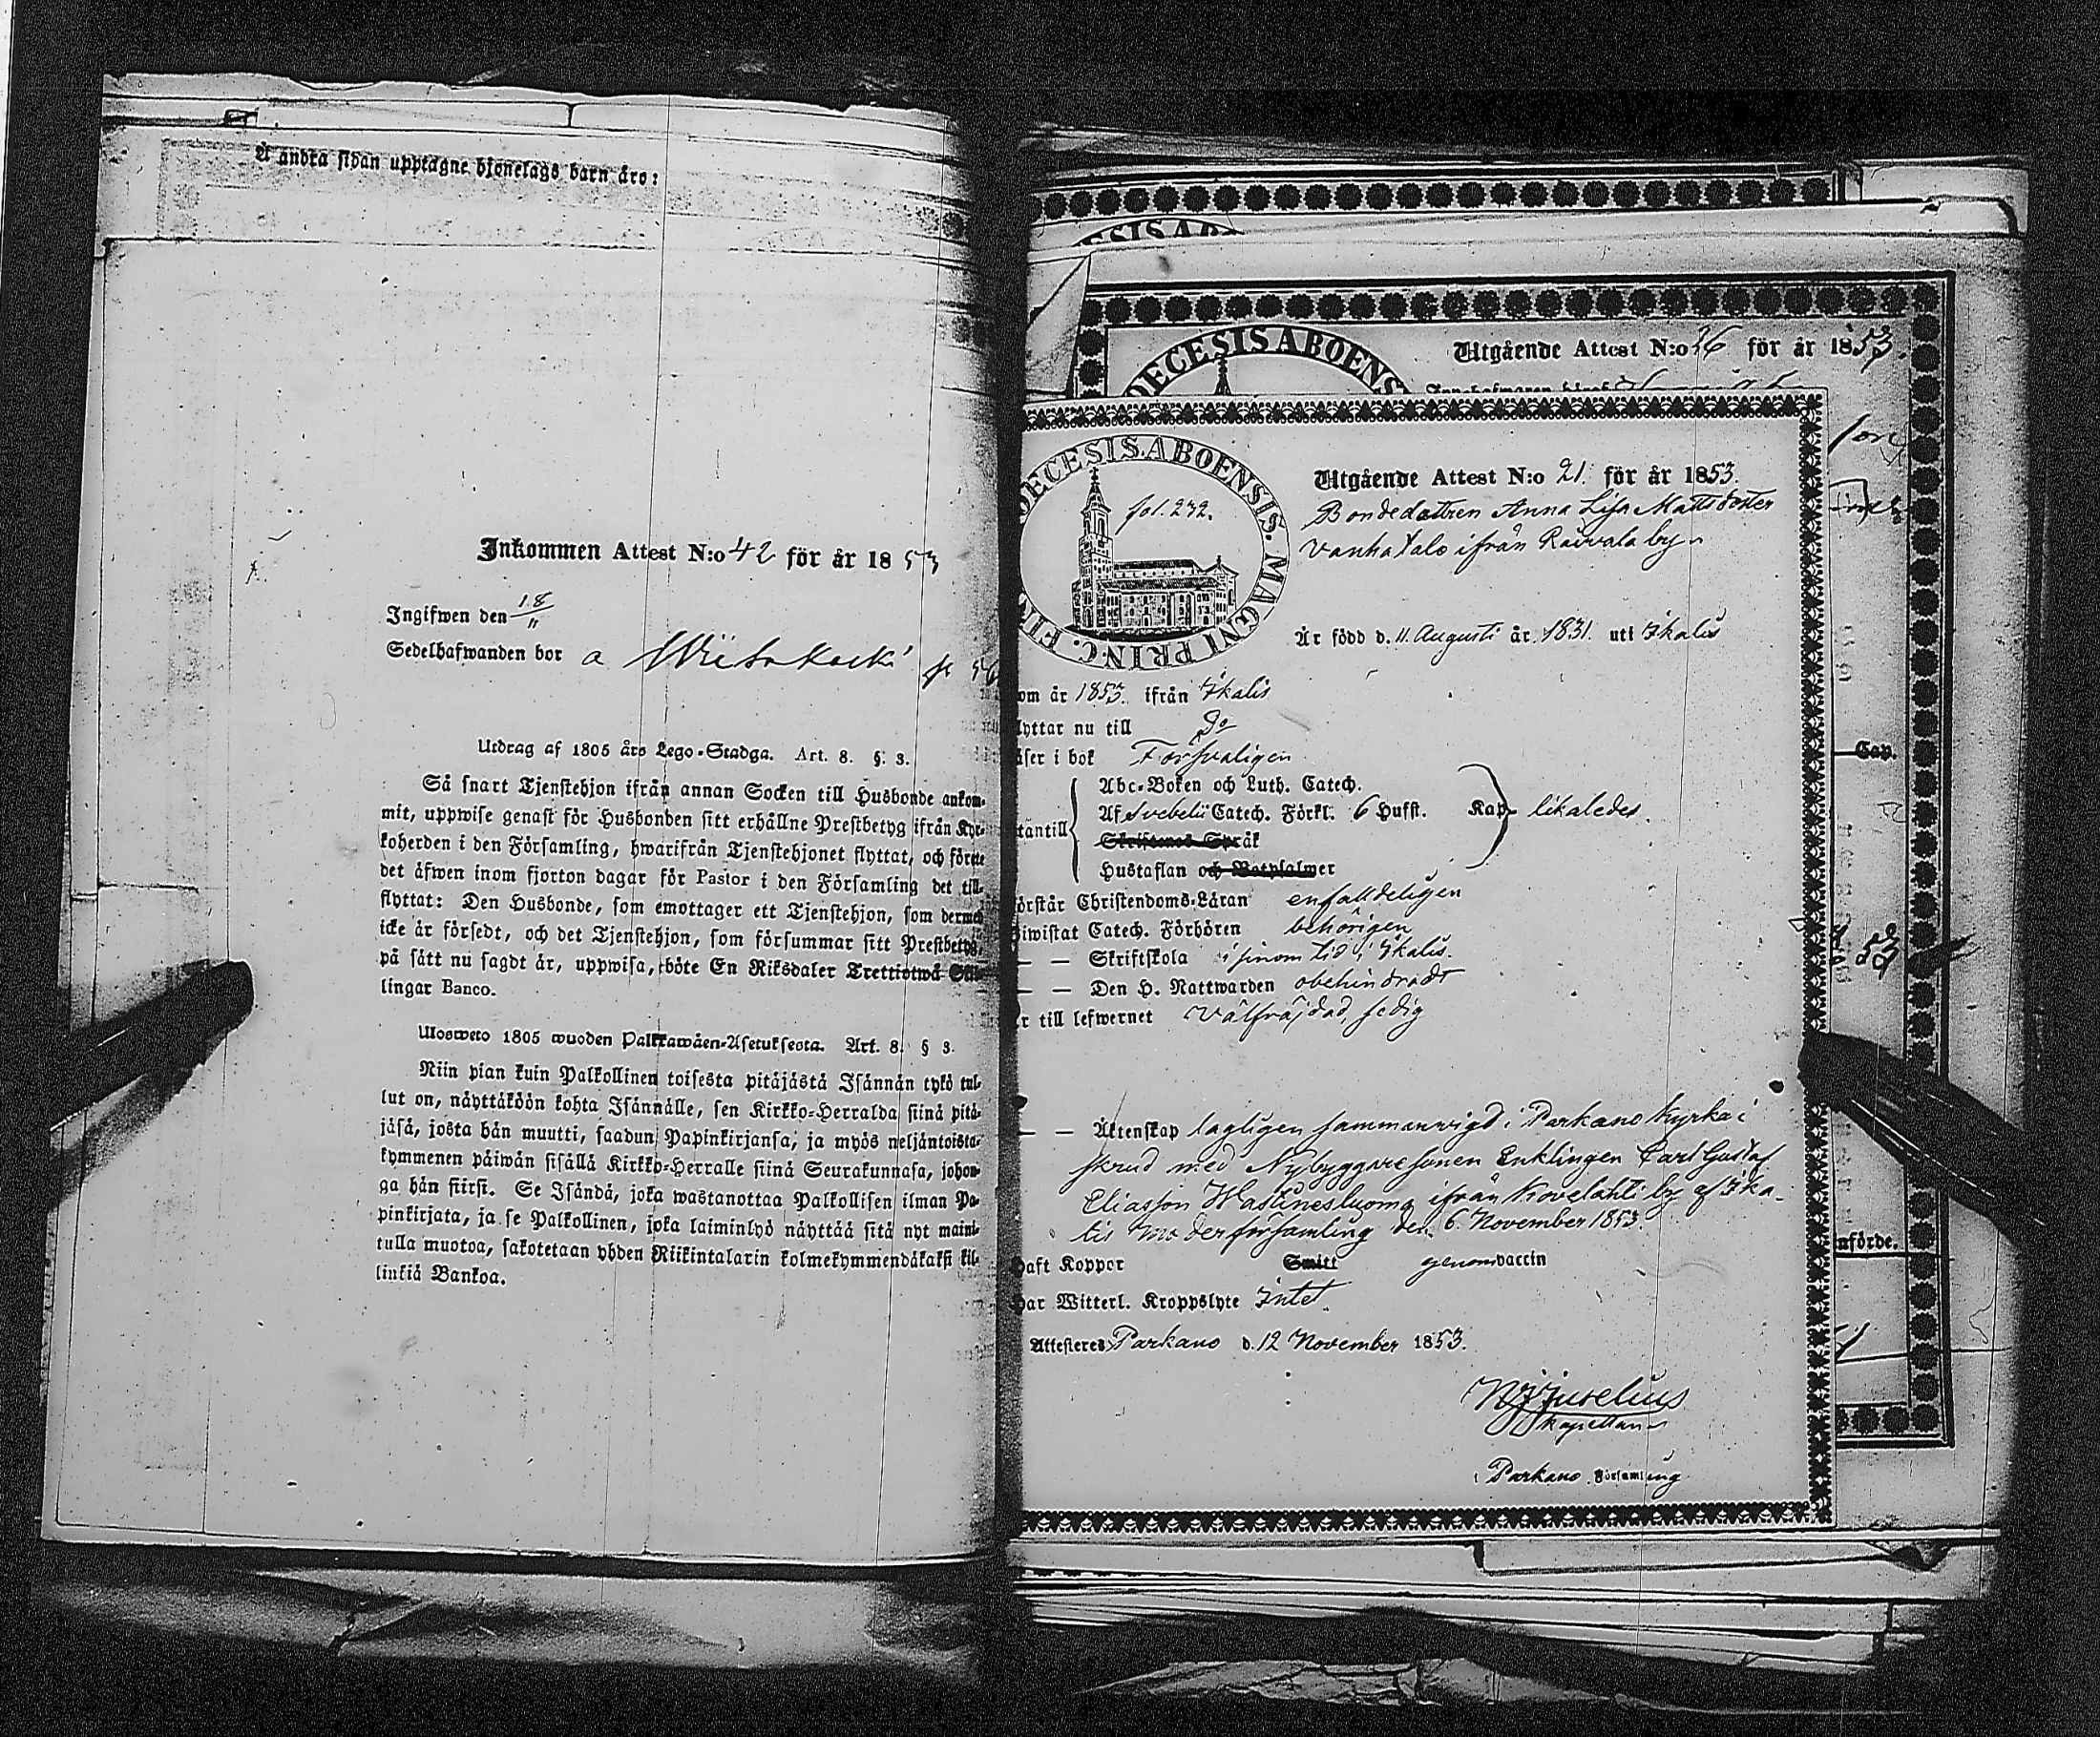 Å andra sidan upptagne hjonelags barn äro:
Inkommen Attest N:o 42 för år 1853
Ingifwen den 18/11
Sedelhafwanden bor a
Utdrag af 1805 års Lego-Stadga. Art. 8. §. 3.
Så snart Tjenstehjon ifrån annan Socken till Husbonde ankom-
mit, uppwise genast för Husbonden sitt erhållne Prestbetyg ifrån Kyr-
koherden i den Församling, hwarifrån Tjenstehjonet flyttat, och förete
det äfwen inom fjorton dagar för Pastor i den Församling det till-
flyttat: Den Husbonde, som emottager ett Tjenstehjon, som dermed
icke är försedt, och det Tjenstehjon, som försummar sitt Prestbetyg,
på sätt nu sagdt är, uppwisa, böte En Riksdaler Trettiotwå Skil-
lingar Banco.
Ulosweto 1805 wuoden Palkkawäen-Asetuksesta. Art. 8. § 3.
Niin pian kuin Palkollinen toisesta pitäjästä Isännän tykö tul-
lut on, näyttäköön kohta Isännälle, sen Kirkko-Herralda siinä pitä-
jäsä, josta hän muutti, saadun Papinkirjansa, ja myös neljäntoista-
kymmenen päiwän sisällä Kirkko-Herralle siinä Seurakunnasa, johon-
ga hän siirsi. Se Isändä, joka wastanottaa Palkollisen ilman Pa-
pinkirjata, ja se Palkollinen, joka laiminlyö näyttää sitä nyt maini-
tulla muotoa, sakotetaan yhden Riikintalarin kolmekymmendäkaksi kil-
linkiä Bankoa.
DECESIS ABOENS
Utgående Attest N:o 26 för år 1853.
DECESIS. ABOENSIS. MAGNI PRINC. FIN
fol. 232.
Utgående Attest N:o 21. för år 1853.
Bondedottren Anna Lisa Mattsdotter
Vanhatalo ifrån Raivala by
Är född d. 11. Augusti år 1831. uti Ikalis
om år 1853. ifrån Ikalis
lyttar nu till Do
äser i bok Försvarligen
Abc-Boken och Luth. Catech.
Af Svebelii Catech. Förkl. 6 Hufst. Kap. likaledes.
tantill
Skriftenes Språk
Hustaflan och Botpsalmer
örstår Christendoms-Läran enfaldeligen
iwistat Catech. Förhören behörigen
— — Skriftskola i sinom tid i Ikalis.
— — Den H. Nattwarden obehindradt
r till lefwernet välfräjdad, ledig
— — Äktenskap lagligen sammanvigd i Parkano kyrka i
skrud med Nybyggaresonen Enklingen Carl Gustaf
Eliasson ifrån Kovelahti by af Ika-
lis Moderförsamling den 6 November 1853.
Haft Koppor Smitt genom vaccin
Har Witterl. Kroppslyte Intet.
Attesteres Parkano d. 12 November 1853.
Juselius
Kapellan
i Parkano Församling
Cap.
nförde.